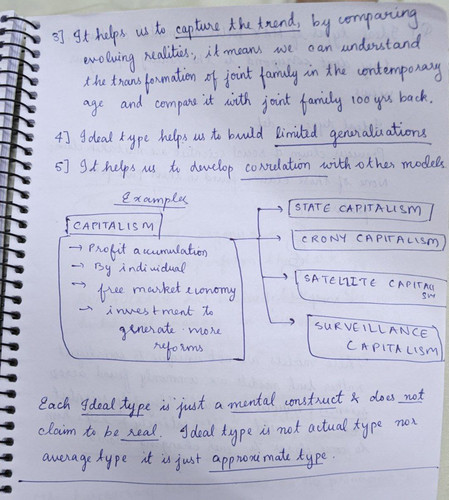 3] It helps us to capture the trend, by comparing
evolving realities; it means we can understand
the transformation of joint family in the contemporary
age and compare it with joint family 100 yrs back.
4] Ideal type helps us to build limited generalisations
5] It helps us to develop correlation with other models
Examples
CAPITALISM
→ Profit accumulation
→ By individual
→ free market economy
→ investment to
generate more
reforms
STATE CAPITALISM
CRONY CAPITALISM
SATELLITE CAPITALI
SM
SURVEILLANCE
CAPITALISM
Each Ideal type is just a mental construct & does not
claim to be real. Ideal type is not actual type nor
average type it is just approximate type.